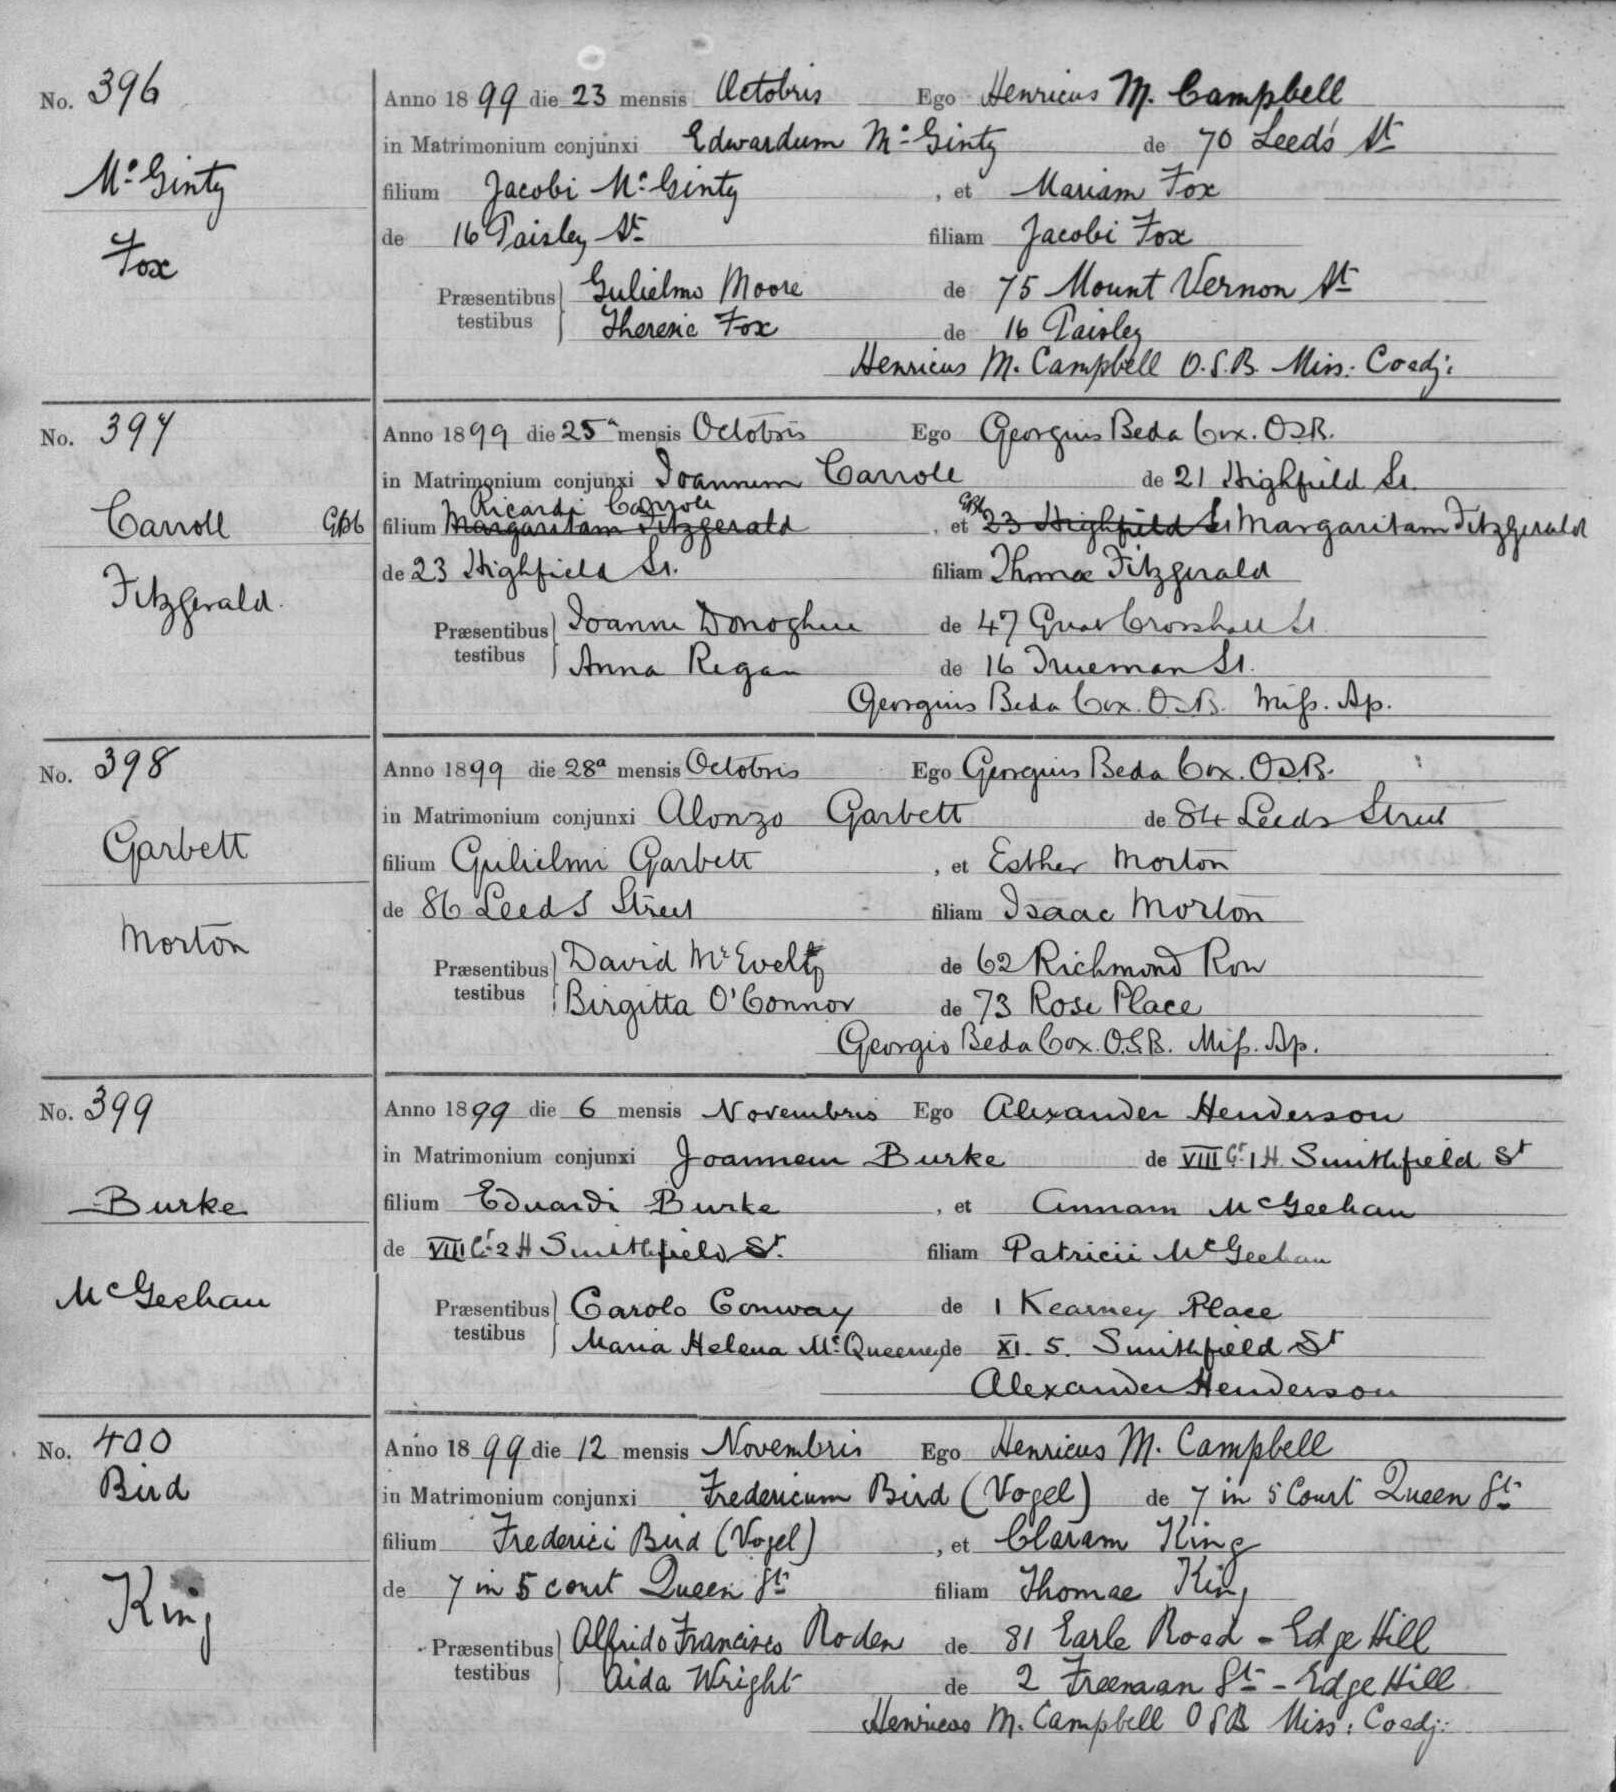 No. 396
McGinty
Fox
Anno 1899 die 23 mensis Octobris Ego Henricus M. Campbell
in Matrimonium conjunxi Edwardum McGinty de 70 Leeds St
filium Jacobi McGinty , et Mariam Fox
de 16 Paisley St filiam Jacobi Fox
Præsentibus testibus Gulielmo Moore de 75 Mount Vernon St
Theresie Fox de 16 Paisley
Henricus M. Campbell O.S.B. Miss. Coadj:
No. 397
Carroll GBC
Fitzgerald.
Anno 1899 die 25a mensis Octobris Ego Georgius Beda Cox. OSB.
in Matrimonium conjunxi Joannem Carroll de 21 Highfield St.
Ricardi Carroll
filium Margaritam Fitzgerald , et GBC 23 Highfield St Margaritam Fitzgerald
de 23 Highfield St. filiam Thomae Fitzgerald
Præsentibus testibus Joanne Donoghue de 47 Great Crosshall St
Anna Regan de 16 Trueman St.
Georgius Beda Cox. OSB. Miss. Ap.
No. 398
Garbett
Morton
Anno 1899 die 28a mensis Octobris Ego Georgius Beda Cox. OSB.
in Matrimonium conjunxi Alonzo Garbett de 84 Leeds Street
filium Gulielmi Garbett , et Esther Morton
de 86 Leeds Street filiam Isaac Morton
Præsentibus testibus David McEvelty de 62 Richmond Row
Birgitta O'Connor de 73 Rose Place
Georgio Beda Cox. O.S.B. Miss. Ap.
No. 399
Burke
McGeehan
Anno 1899 die 6 mensis Novembris Ego Alexander Henderson
in Matrimonium conjunxi Joannem Burke de VIII Ct. 1 H Smithfield St
filium Eduardi Burke , et Annam McGeehan
de VIII Ct. 2 H Smithfield St. filiam Patricii McGeehan
Præsentibus testibus Carolo Conway de 1 Kearney Place
Maria Helena McQueeney de XI. 5. Smithfield St
Alexander Henderson
No. 400
Bird
King
Anno 1899 die 12 mensis Novembris Ego Henricus M. Campbell
in Matrimonium conjunxi Fredericum Bird (Vogel) de 7 in 5 Court Queen St
filium Frederici Bird (Vogel) , et Claram King
de 7 in 5 court Queen St filiam Thomae King
Præsentibus testibus Alfrido Francisco Roden de 81 Earle Road - Edge Hill
Aida Wright de 2 Freeman St - Edge Hill
Henricus M. Campbell OSB Miss: Coadj: